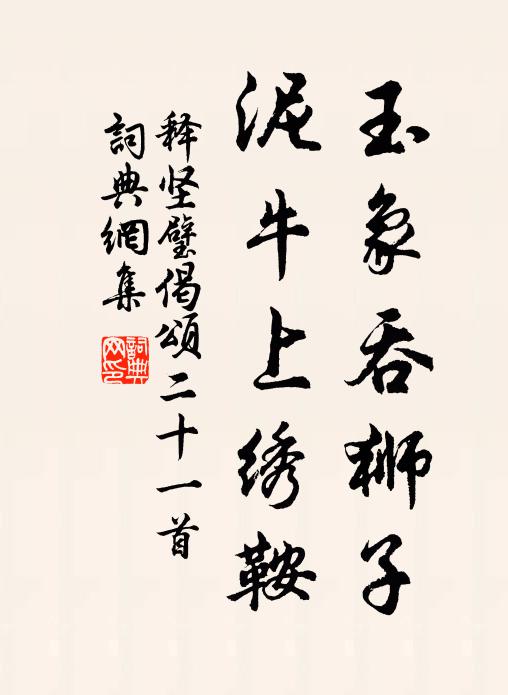 玉象吞狮子
泥牛上绣鞍
释坚璧偈颂二十一首
詞典網集
詞典網印